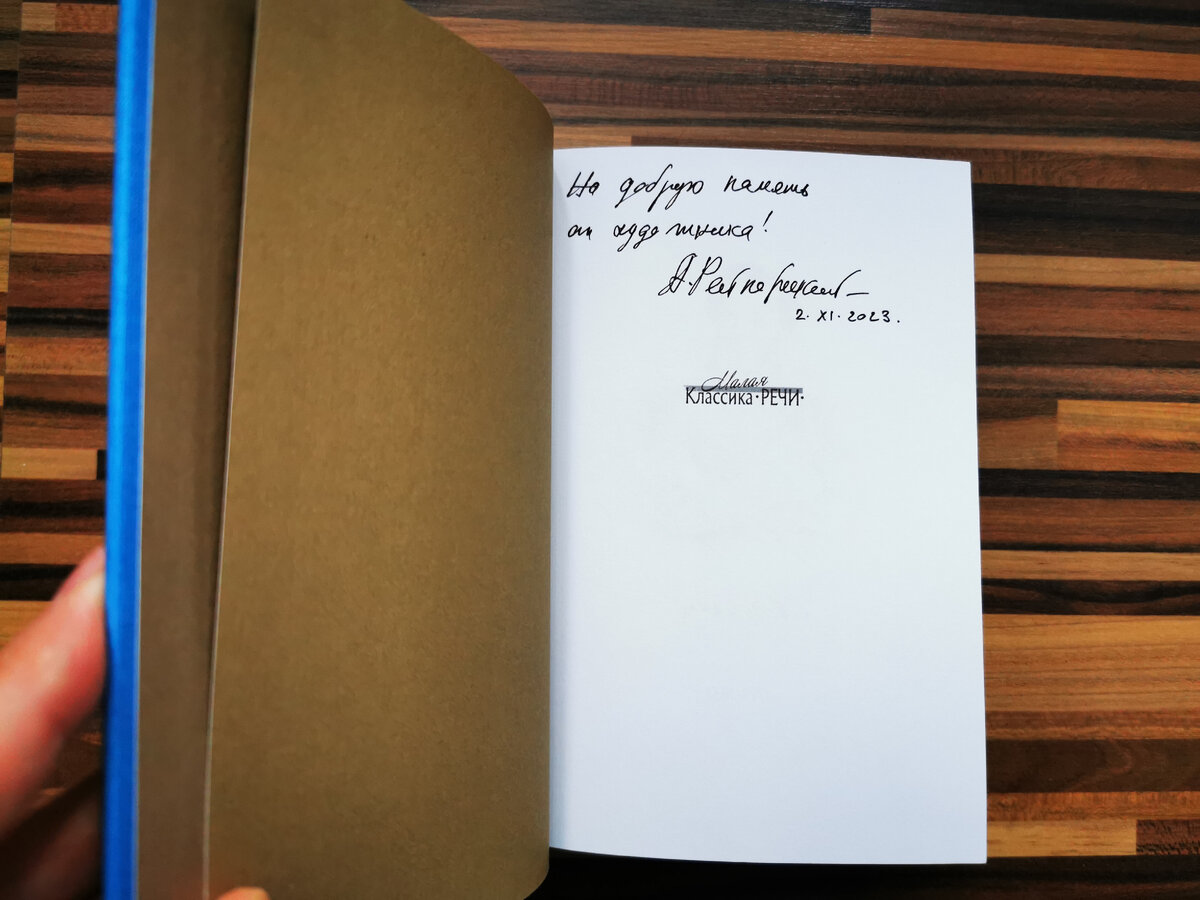 На добрую память
от художника!
2. XI. 2023.
Малая
Классика·РЕЧИ·